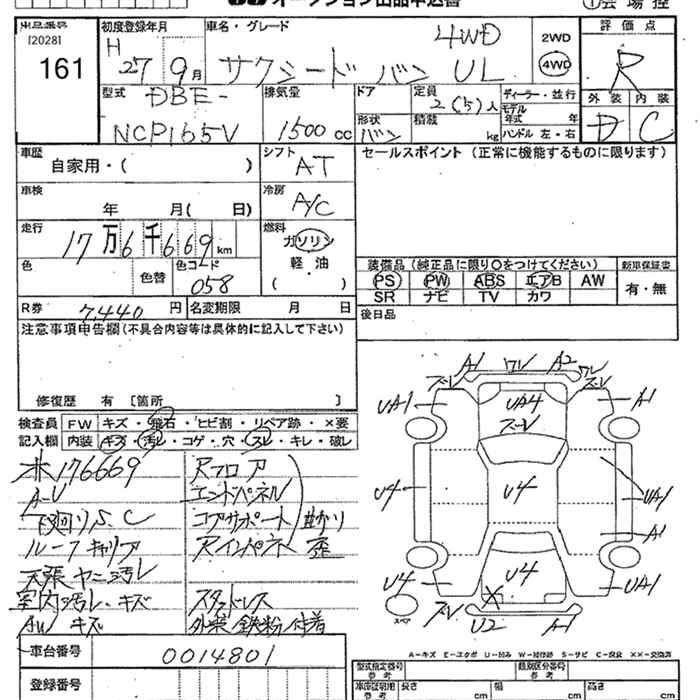 オークション出品申込書
①会場控
出品番号
[2028]
161
初度登録年月
H
27 9月
車名・グレード
4WD
サクシード バン UL
2WD
4WD
評価点
R
外装 内装
D C
型式
DBE-
NCP165V
排気量
1500 cc
ドア
形状
バン
定員
2(5)人
積載
kg
ディーラー・並行
モデル
年式 年
ハンドル 左・右
車歴
自家用・( )
シフト
AT
セールスポイント(正常に機能するものに限ります)
車検
年 月( 日)
冷房
A/C
走行
17万6千669 km
燃料
ガソリン
軽・油
( )
色
色替
色コード
058
装備品(純正品に限り○をつけてください)
新車保証書
PS PW ABS エアB AW
SR ナビ TV カワ
有・無
R券
7,440 円
名変期限 月 日
後日品
注意事項申告欄(不具合内容等は具体的に記入して下さい)
修復歴 有 [箇所 ]
検査員
記入欄
FW キズ・飛石・ヒビ割・リペア跡・×要
内装 キズ・汚レ・コゲ・穴・スレ・キレ・破レ
176669
Rフロア
A-U
エンドパネル
下廻りS.C
コアサポート 曲がり
ルーフキャリア
Rインパネ 歪
天張ヤニ汚レ
室内汚レ・キズ
スタッドレス
AW キズ
外装鉄粉付着
A1 ワレ A2 ワレ
ズーレ ズーレ
UA1 UA4 A1
ズーレ
U4 U4 UA1
A1
U4 U4 UA1
X
スペア
ズレ U2 A1
A−キズ E−エクボ U−凹み W−補修跡 S−サビ C−腐食 ××−交換済
車台番号
0014801
登録番号
型式指定番号
参考
類別区分番号
参考
車庫証明用
参考
長さ cm
幅 cm
高さ cm